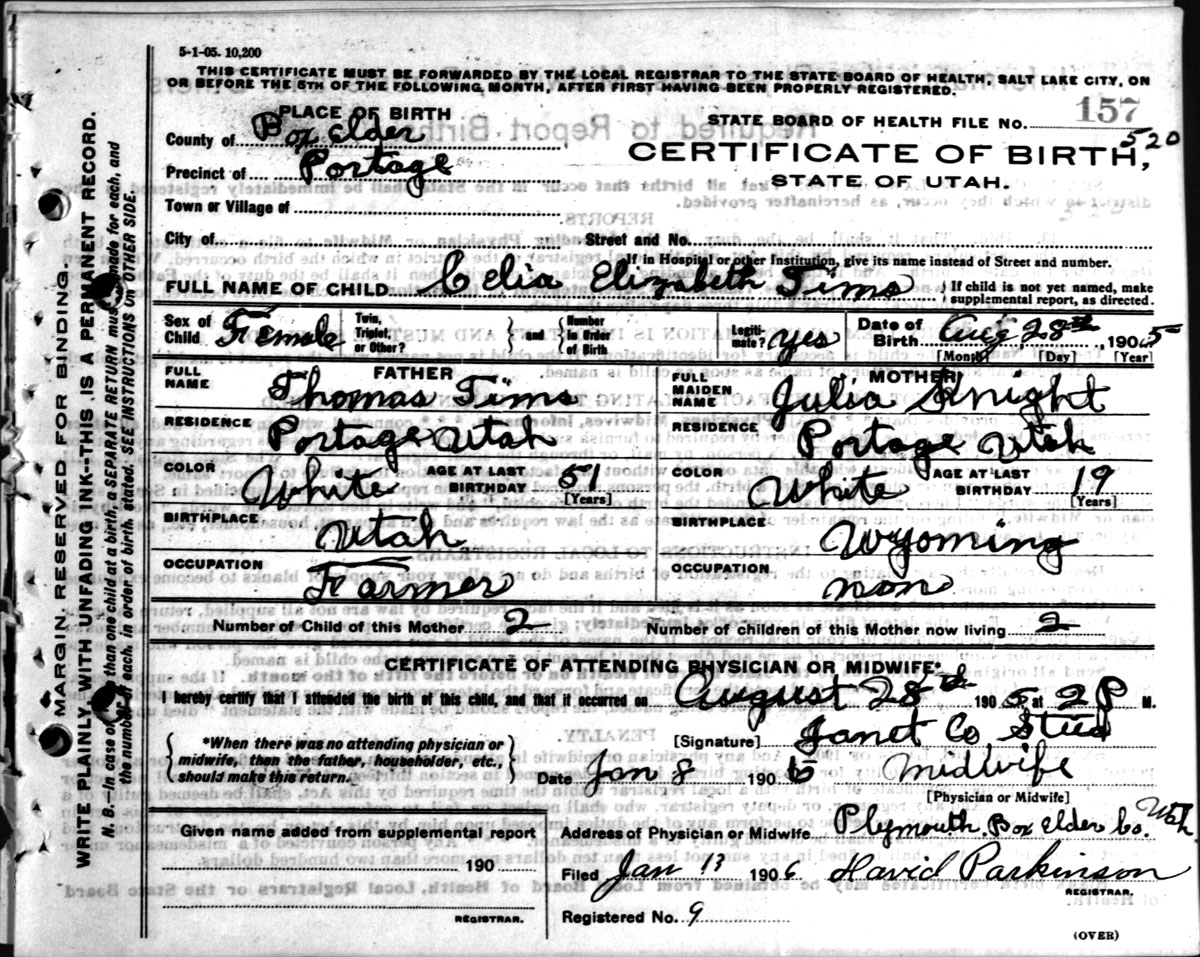 5-1-05. 10,200
THIS CERTIFICATE MUST BE FORWARDED BY THE LOCAL REGISTRAR TO THE STATE BOARD OF HEALTH, SALT LAKE CITY, ON
OR BEFORE THE 5TH OF THE FOLLOWING MONTH, AFTER FIRST HAVING BEEN PROPERLY REGISTERED.
PLACE OF BIRTH
STATE BOARD OF HEALTH FILE NO. 157
County of Box Elder
520
CERTIFICATE OF BIRTH,
Precinct of Portage
STATE OF UTAH.
Town or Village of
City of Street and No.
If in Hospital or other Institution, give its name instead of Street and number.
FULL NAME OF CHILD Celia Elizabeth Tims } If child is not yet named, make supplemental report, as directed.
Sex of Child Female Twin, Triplet, or Other? } and { Number in Order of Birth Legiti-mate? yes Date of Birth Aug 28th, 1905
[Month] [Day] [Year]
FATHER MOTHER
FULL NAME Thomas Tims FULL MAIDEN NAME Julia Knight
RESIDENCE Portage Utah RESIDENCE Portage Utah
COLOR White AGE AT LAST BIRTHDAY 51 [Years] COLOR White AGE AT LAST BIRTHDAY 19 [Years]
BIRTHPLACE Utah BIRTHPLACE Wyoming
OCCUPATION Farmer OCCUPATION non
Number of Child of this Mother 2 Number of children of this Mother now living 2
CERTIFICATE OF ATTENDING PHYSICIAN OR MIDWIFE*
I hereby certify that I attended the birth of this child, and that it occurred on August 28th 1905, at 2 P M.
{ *When there was no attending physician or midwife, then the father, householder, etc., should make this return. }
[Signature] Janet
Date Jan 8 190 Midwife
[Physician or Midwife]
Given name added from supplemental report
190
REGISTRAR.
Address of Physician or Midwife Plymouth Box Elder Co. Utah
Filed Jan 13 1906 David Parkinson
REGISTRAR.
Registered No. 9
(OVER)
MARGIN RESERVED FOR BINDING.
WRITE PLAINLY WITH UNFADING INK—THIS IS A PERMANENT RECORD.
N. B.—In case of more than one child at a birth, a SEPARATE RETURN must be made for each, and
the number of each, in order of birth, stated. SEE INSTRUCTIONS ON OTHER SIDE.